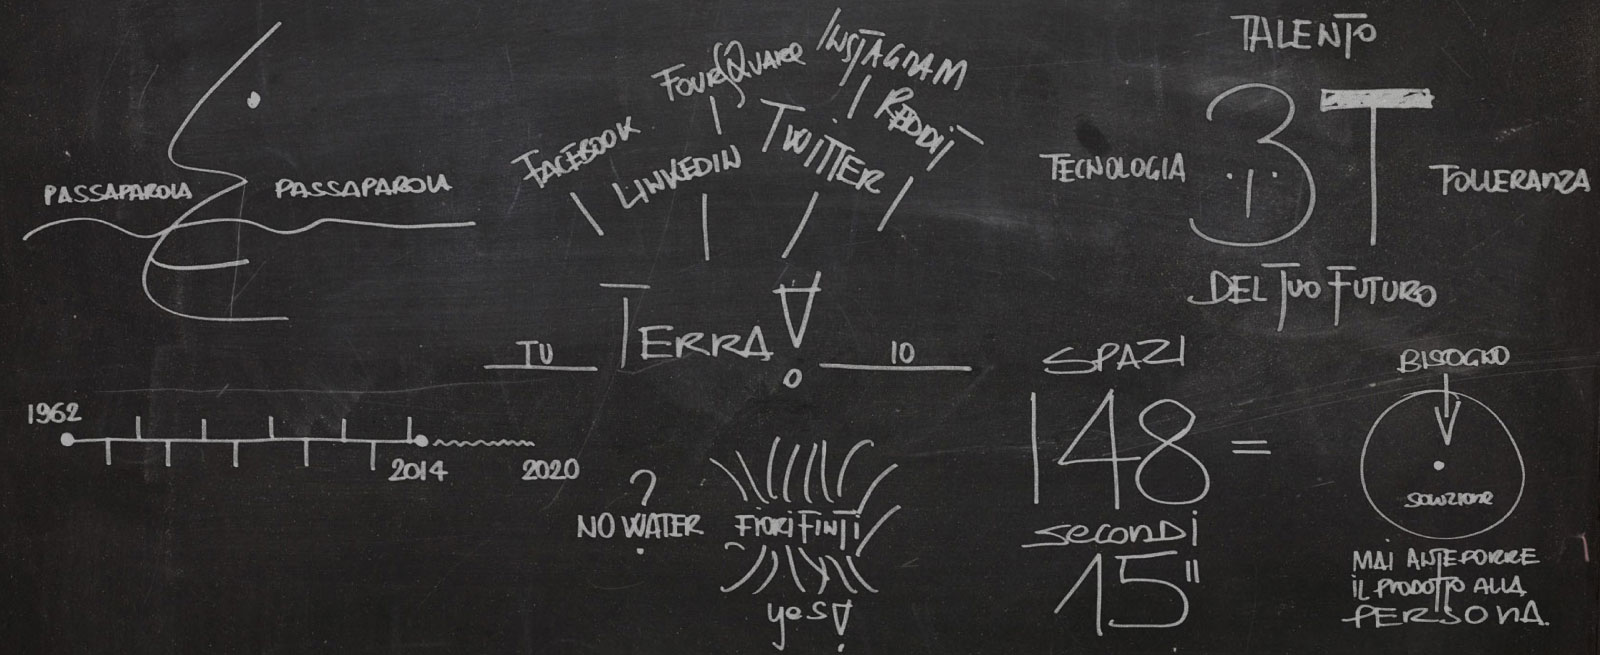 PASSAPAROLA
PASSAPAROLA
1962
2014
2020
FACEBOOK
LINKEDIN
FOURSQUARE
TWITTER
INSTAGRAM
REDDIT
TU
TERRA!
IO
? NO WATER
FIORI FINTI
yes!
TALENTO
TECNOLOGIA
3T
TOLLERANZA
DEL TUO FUTURO
SPAZI
148
SECONDI
15"
=
BISOGNO
SOLUZIONE
MAI ANTEPORRE
IL PRODOTTO ALLA
PERSONA.